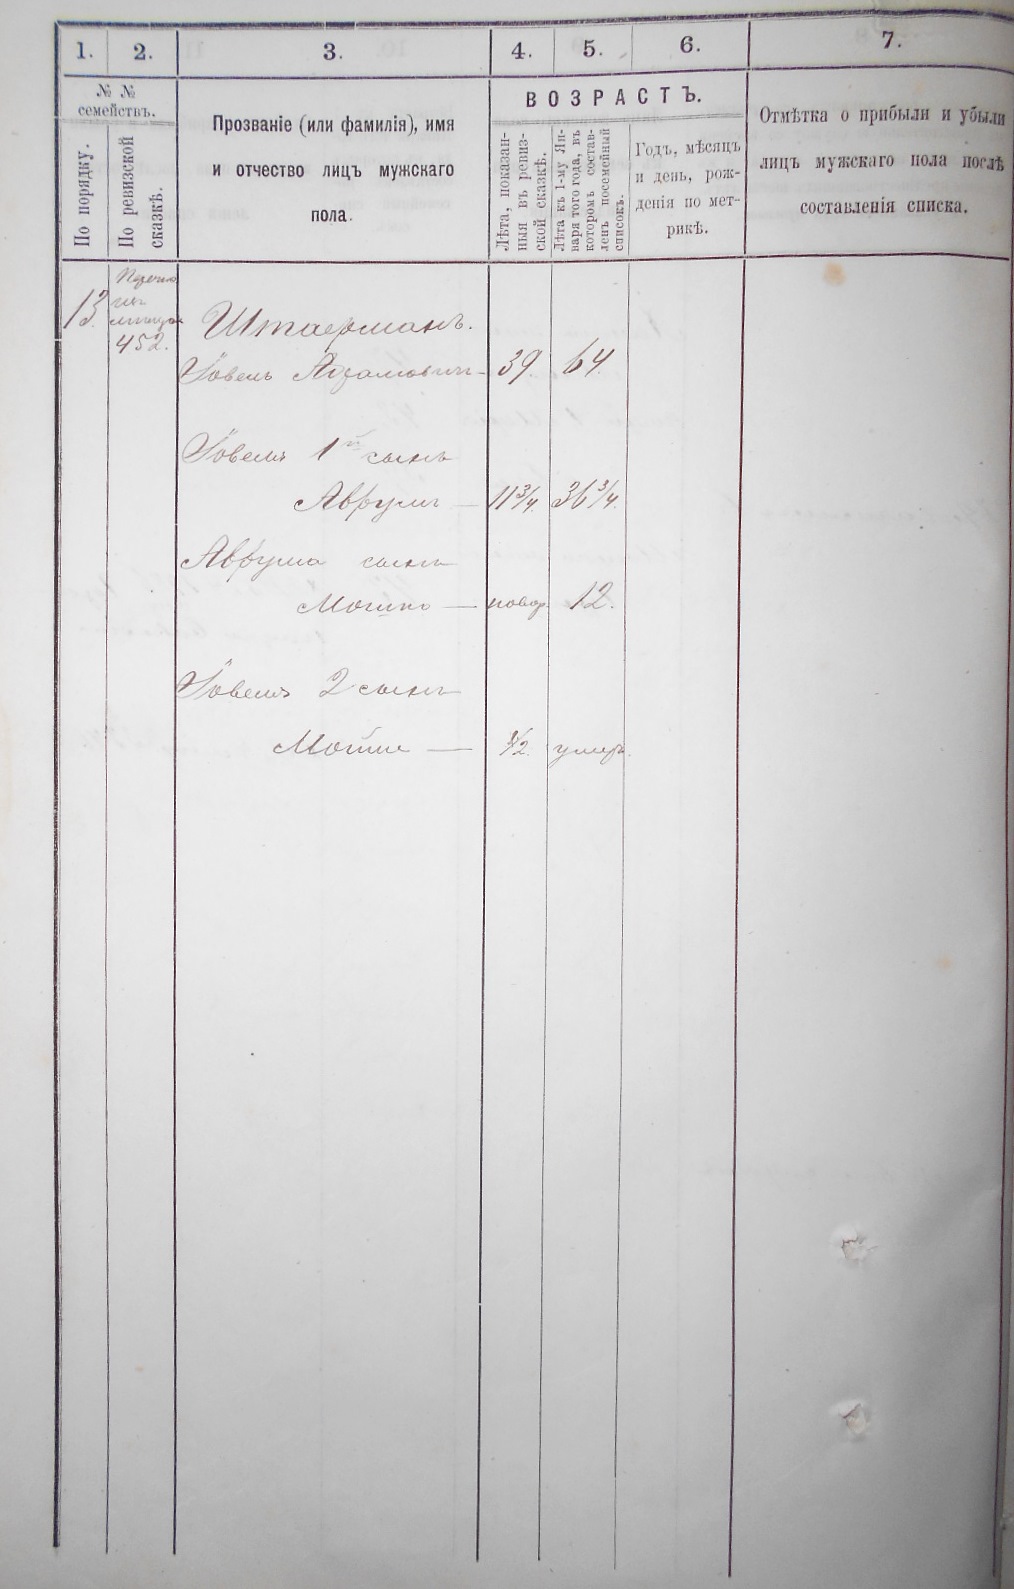 1. 2. 3. 4. 5. 6. 7.
№ №
семействъ.
По порядку.
По ревизской
сказкѣ.
Прозваніе (или фамилія), имя
и отчество лицъ мужскаго
пола.
ВОЗРАСТЪ.
Лѣта, показан-
ныя въ ревиз-
ской сказкѣ.
Лѣта къ 1-му Ян-
варя того года, въ
которомъ состав-
ленъ посемейный
списокъ.
Годъ, мѣсяцъ
и день, рож-
денія по мет-
рикѣ.
Отмѣтка о прибыли и убыли
лицъ мужскаго пола послѣ
составленія списка.
13.
452.
Штаерманъ.
Іовель Абрамовичъ 39 64
Іовеля 1й сынъ
Аврумъ — 11 3/4. 36 3/4.
Аврума сынъ
Мошко — новор. 12.
Іовеля 2 сынъ
Мойше — 1/2. умеръ.